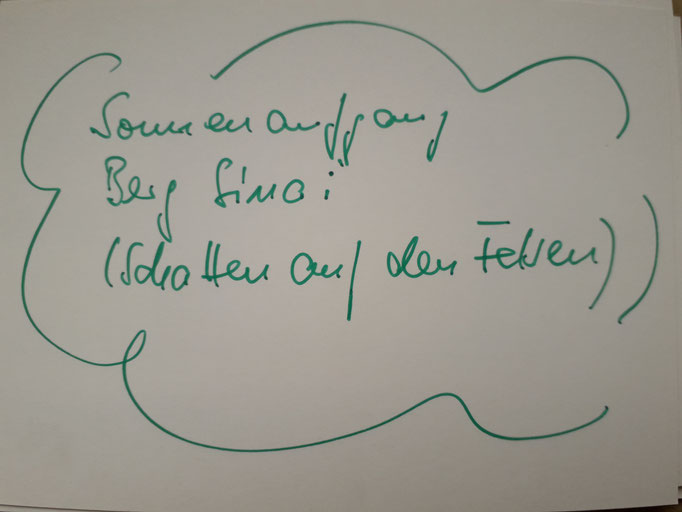 Sonnenaufgang
Berg Sinai
(Schatten auf den Felsen)